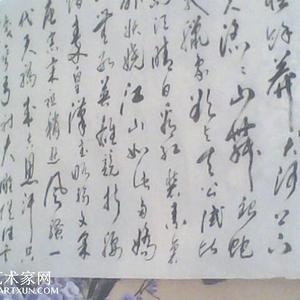 余莽大河上下
失滔〻山舞银蛇
蜡象欲与天公试比
晴日看红装素裹
外妖娆江山如此多娇
无数英雄竞折腰
惜秦皇汉武略输文采
唐宗宋祖稍逊风骚一
代天骄成吉思汗只
弯弓射大雕俱往
艺术家网
ARTXUN.COM